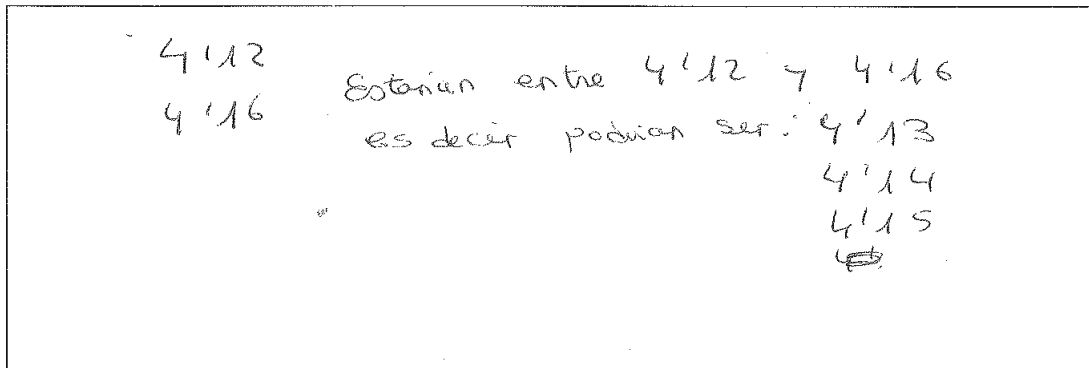 4'12
4'16
Estarían entre 4'12 y 4'16
es decir podrian ser: 4'13
4'14
4'15